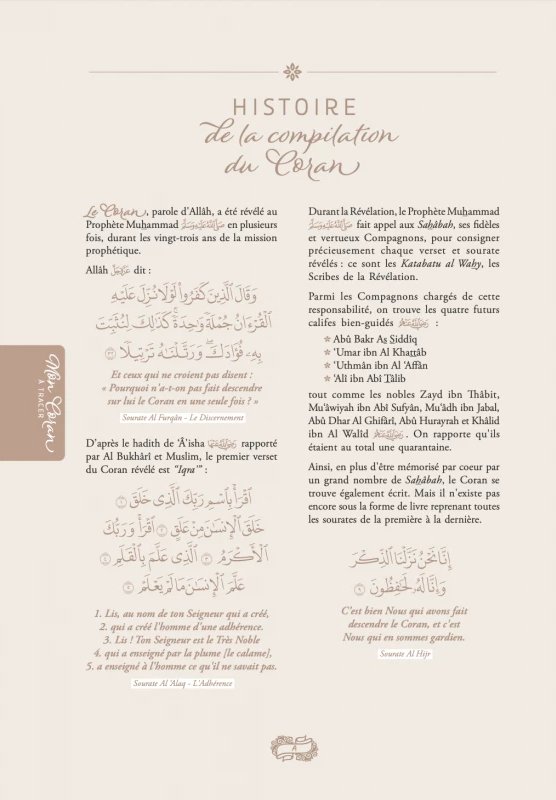 HISTOIRE
de la compilation
du Coran
Le Coran, parole d'Allâh, a été révélé au
Prophète Muhammad ﷺ en plusieurs
fois, durant les vingt-trois ans de la mission
prophétique.
Allâh عَزَّوَجَلَّ dit :
وَقَالَ ٱلَّذِينَ كَفَرُوا۟ لَوْلَا نُزِّلَ عَلَيْهِ
ٱلْقُرْءَانُ جُمْلَةً وَٰحِدَةً ۚ كَذَٰلِكَ لِنُثَبِّتَ
بِهِۦ فُؤَادَكَ ۖ وَرَتَّلْنَٰهُ تَرْتِيلًا ٣٢
Et ceux qui ne croient pas disent :
« Pourquoi n'a-t-on pas fait descendre
sur lui le Coran en une seule fois ? »
Sourate Al Furqân - Le Discernement
D'après le hadith de 'Â'isha rapporté
par Al Bukhârî et Muslim, le premier verset
du Coran révélé est "Iqra'" :
ٱقْرَأْ بِٱسْمِ رَبِّكَ ٱلَّذِى خَلَقَ ١
خَلَقَ ٱلْإِنسَٰنَ مِنْ عَلَقٍ ٢ ٱقْرَأْ وَرَبُّكَ
ٱلْأَكْرَمُ ٣ ٱلَّذِى عَلَّمَ بِٱلْقَلَمِ ٤
عَلَّمَ ٱلْإِنسَٰنَ مَا لَمْ يَعْلَمْ ٥
1. Lis, au nom de ton Seigneur qui a créé,
2. qui a créé l'homme d'une adhérence.
3. Lis ! Ton Seigneur est le Très Noble
4. qui a enseigné par la plume [le calame],
5. a enseigné à l'homme ce qu'il ne savait pas.
Sourate Al 'Alaq - L'Adhérence
Durant la Révélation, le Prophète Muhammad
ﷺ fait appel aux Sahâbah, ses fidèles
et vertueux Compagnons, pour consigner
précieusement chaque verset et sourate
révélés : ce sont les Katabatu al Wahy, les
Scribes de la Révélation.
Parmi les Compagnons chargés de cette
responsabilité, on trouve les quatre futurs
califes bien-guidés :
Abû Bakr As Siddîq
'Umar ibn Al Khattâb
'Uthmân ibn Al 'Affân
'Alî ibn Abî Tâlib
tout comme les nobles Zayd ibn Thâbit,
Mu'âwiyah ibn Abî Sufyân, Mu'âdh ibn Jabal,
Abû Dhar Al Ghifârî, Abû Hurayrah et Khâlid
ibn Al Walîd . On rapporte qu'ils
étaient au total une quarantaine.
Ainsi, en plus d'être mémorisé par coeur par
un grand nombre de Sahâbah, le Coran se
trouve également écrit. Mais il n'existe pas
encore sous la forme de livre reprenant toutes
les sourates de la première à la dernière.
إِنَّا نَحْنُ نَزَّلْنَا ٱلذِّكْرَ
وَإِنَّا لَهُۥ لَحَٰفِظُونَ ٩
C'est bien Nous qui avons fait
descendre le Coran, et c'est
Nous qui en sommes gardien.
Sourate Al Hijr
Mon Coran
À TRACER
A